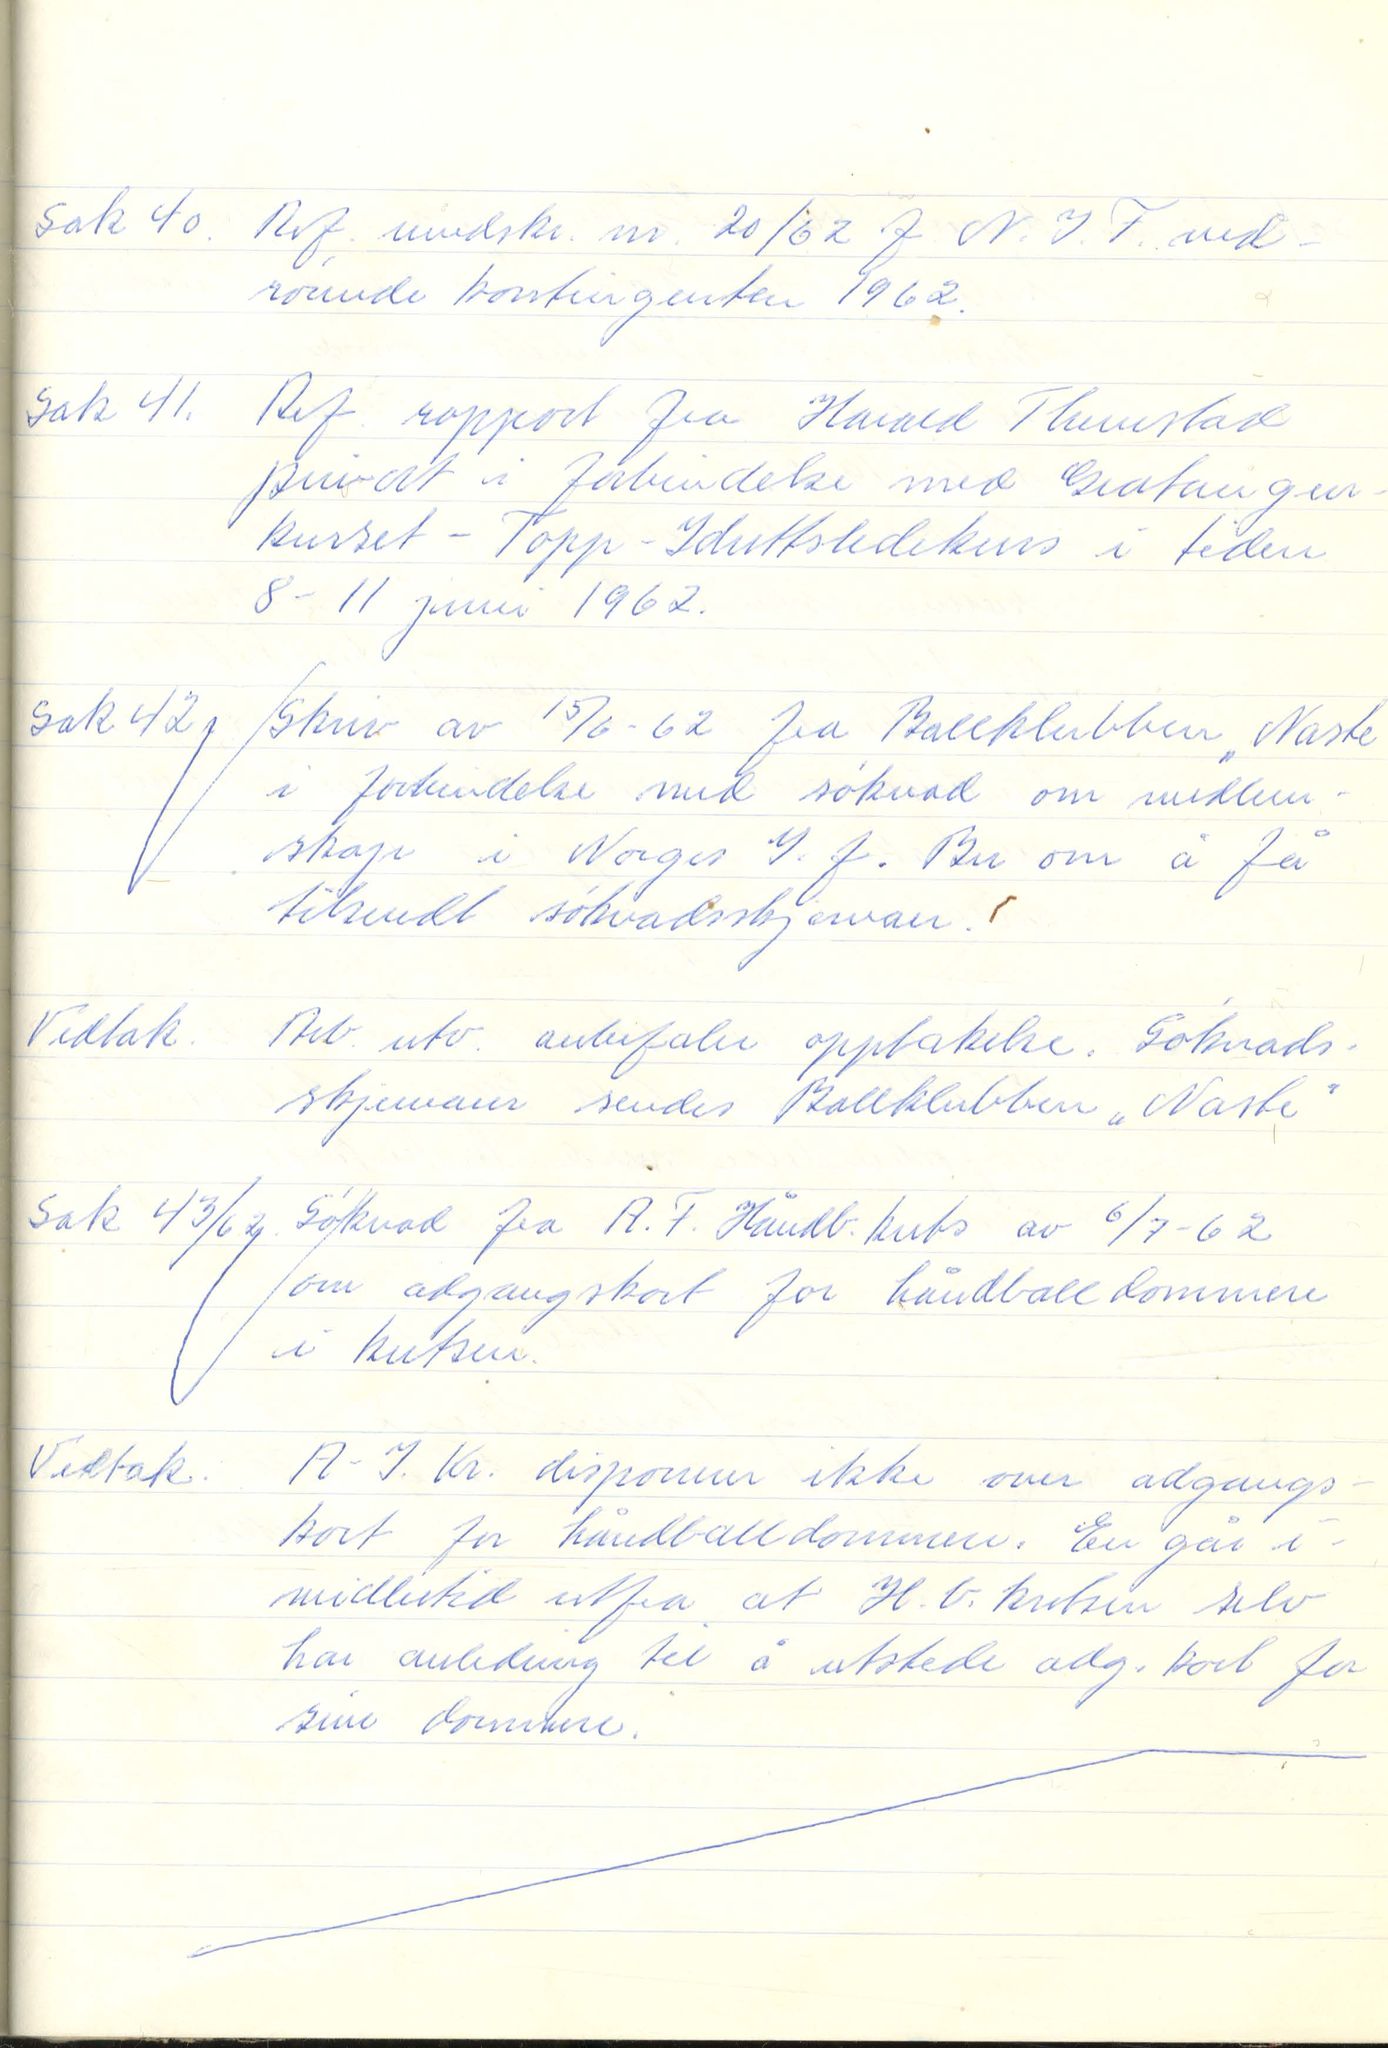 Sak 40. Ref. rundskr. nr. 20/62 f N. I. F. ved-
rörende kontingenten 1962.
Sak 41. Ref. rapport fra Harald Thunstad
privat i forbindelse med Gratangen-
kurset - Topp - Idrettsledekurs i tiden
8 - 11 juni 1962.
Sak 42, Skriv av 15/6-62 fra Ballklubben „Naske
i forbindelse med söknad om medlem-
skap i Norges I. f. Ber om å få
tilsendt söknadsskjemaer.
Vedtak. Arb. utv. anbefaler opptakelse. Söknads-
skjemaer sendes Ballklubben „Naske"
Sak 43/62. Söknad fra A. F. Håndb. krets av 6/7-62
om adgangskort for håndballdommere
i kretsen.
Vedtak. A - I. Kr. disponerer ikke over adgangs-
kort for håndballdommere. En går i-
midlertid utfra at H. b. kretsen selv
har anledning til å utstede adg. kort for
sine dommere.